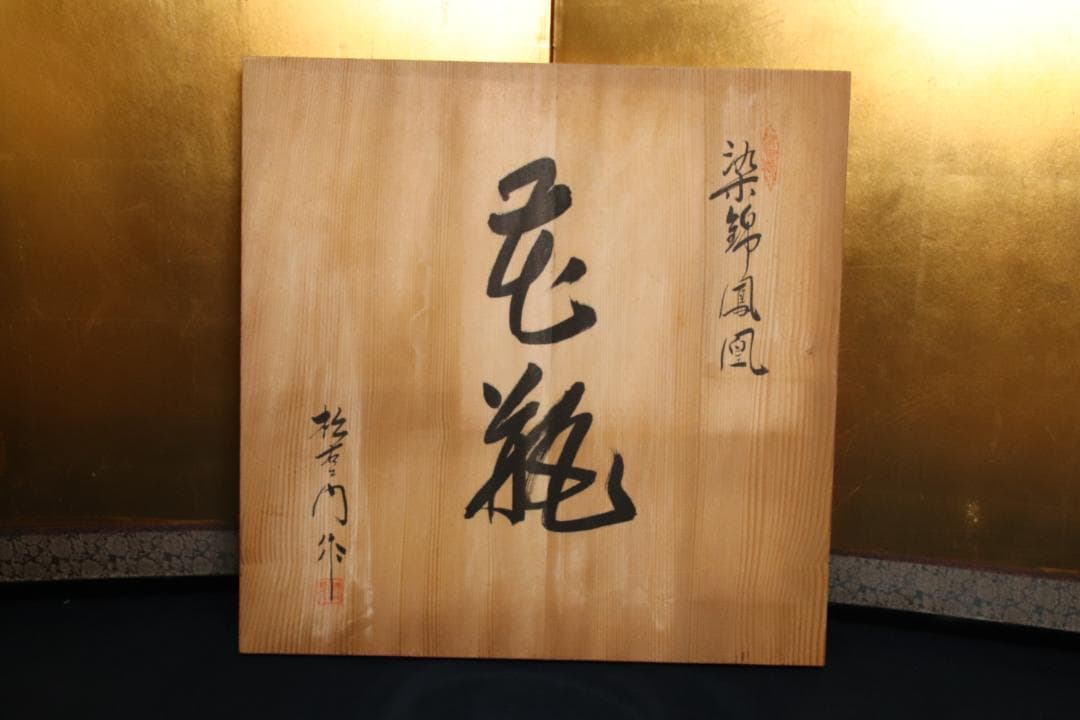 染錦鳳凰
花瓶
松右エ門作